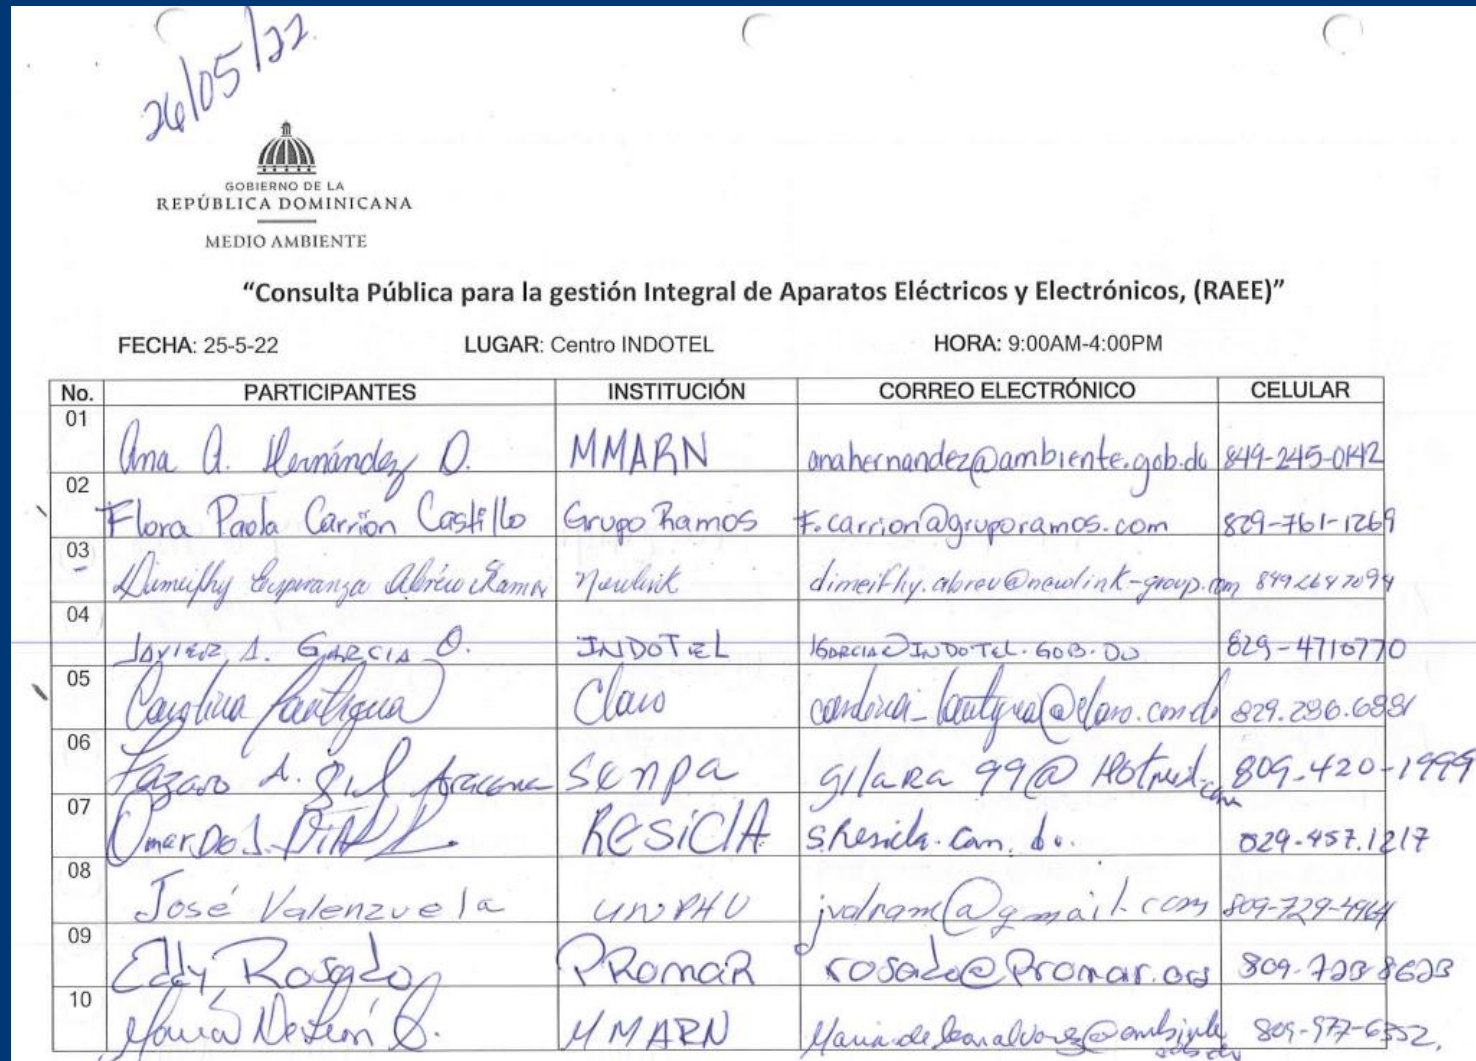 26/05/22
GOBIERNO DE LA
REPÚBLICA DOMINICANA
MEDIO AMBIENTE
“Consulta Pública para la gestión Integral de Aparatos Eléctricos y Electrónicos, (RAEE)”
FECHA: 25-5-22 LUGAR: Centro INDOTEL HORA: 9:00AM-4:00PM
No. PARTICIPANTES INSTITUCIÓN CORREO ELECTRÓNICO CELULAR
01 Ana A. Hernández D. MMARN anahernandez@ambiente.gob.do 849-245-0142
02 Flora Paola Carrión Castillo Grupo Ramos F.carrion@gruporamos.com 829-761-1269
03 Dimeifhy Esperanza Abreu Newlink dimeifhy.abreu@newlink-group.com 8492647094
04 JAVIER A. GARCIA O. INDOTEL 829-4710770
05 Carolina Lantigua Claro 829.286.6881
06 Lazaro A. Gil Aracena 809-420-1999
07 Omar De J. RESICIA 829-457.1217
08 José Valenzuela UNPHU jvalram@gmail.com 809-729-4964
09 Eddy Rosado PROMAR rosado@Promar.org
10 María De León MMARN 809-977-6352.